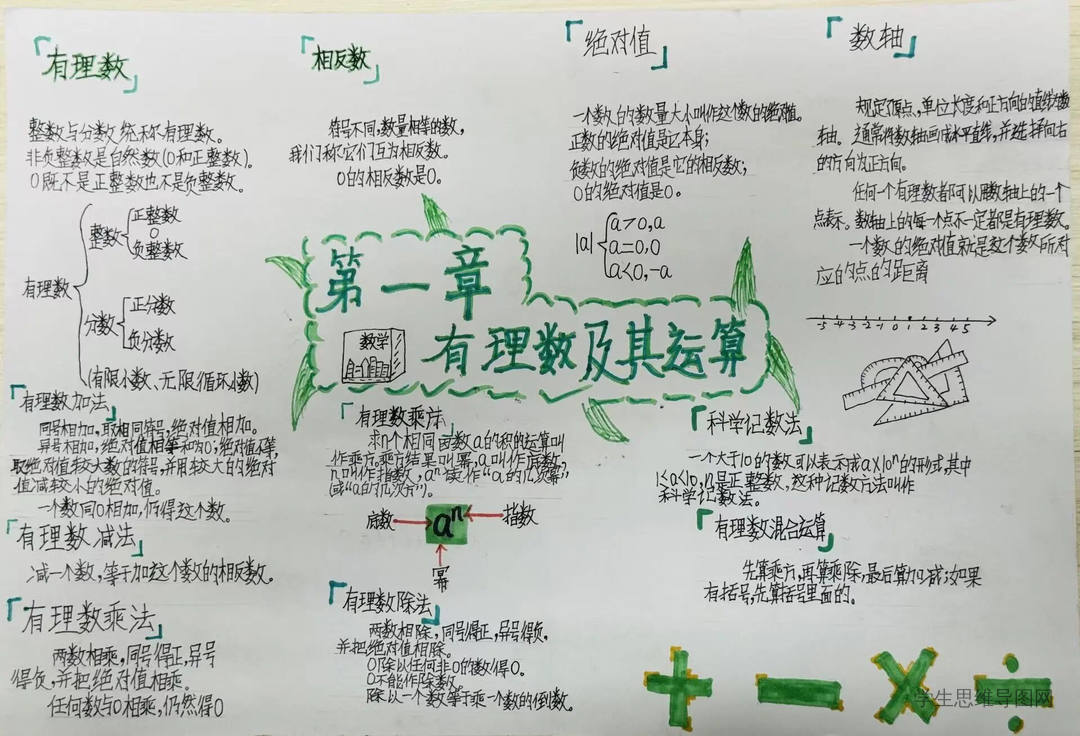 「有理数」
整数与分数统称有理数。
非负整数是自然数(0和正整数)。
0既不是正整数也不是负整数。
有理数
整数
正整数
0
负整数
分数
正分数
负分数
(有限小数、无限循环小数)
「相反数」
符号不同,数量相等的数,
我们称它们互为相反数。
0的相反数是0。
「绝对值」
一个数的数量大小叫作这个数的绝对值。
正数的绝对值是它本身;
负数的绝对值是它的相反数;
0的绝对值是0。
|a|
a>0,a
a=0,0
a<0,-a
「数轴」
规定原点,单位长度和正方向的直线叫数
轴。通常将数轴画成水平直线,并选择向右
的方向为正方向。
任何一个有理数都可以用数轴上的一个
点表示。数轴上的每一个点不一定都是有理数。
一个数的绝对值就是这个数所对
应的点的距离
-5 -4 -3 -2 -1 0 1 2 3 4 5
第一章
数学
有理数及其运算
「有理数加法」
同号相加,取相同符号,绝对值相加。
异号相加,绝对值相等和为0;绝对值不等,
取绝对值较大数的符号,并用较大的绝对
值减较小的绝对值。
一个数同0相加,仍得这个数。
「有理数减法」
减一个数,等于加这个数的相反数。
「有理数乘法」
两数相乘,同号得正,异号
得负,并把绝对值相乘。
任何数与0相乘,仍然得0
「有理数乘法」
求n个相同因数a的积的运算叫
作乘方,乘方结果叫幂,a叫作底数,
n叫作指数,aⁿ读作“a的n次幂”
(或“a的n次方”)。
底数
aⁿ
指数
幂
「有理数除法」
两数相除,同号得正,异号得负,
并把绝对值相除。
0除以任何非0的数得0。
0不能作除数。
除以一个数等于乘一个数的倒数。
「科学记数法」
一个大于10的数可以表示成a×10ⁿ的形式,其中
1≤a<10,n是正整数,这种记数方法叫作
科学记数法。
「有理数混合运算」
先算乘方,再算乘除,最后算加减;如果
有括号,先算括号里面的。
+ − × ÷
学生思维导图网